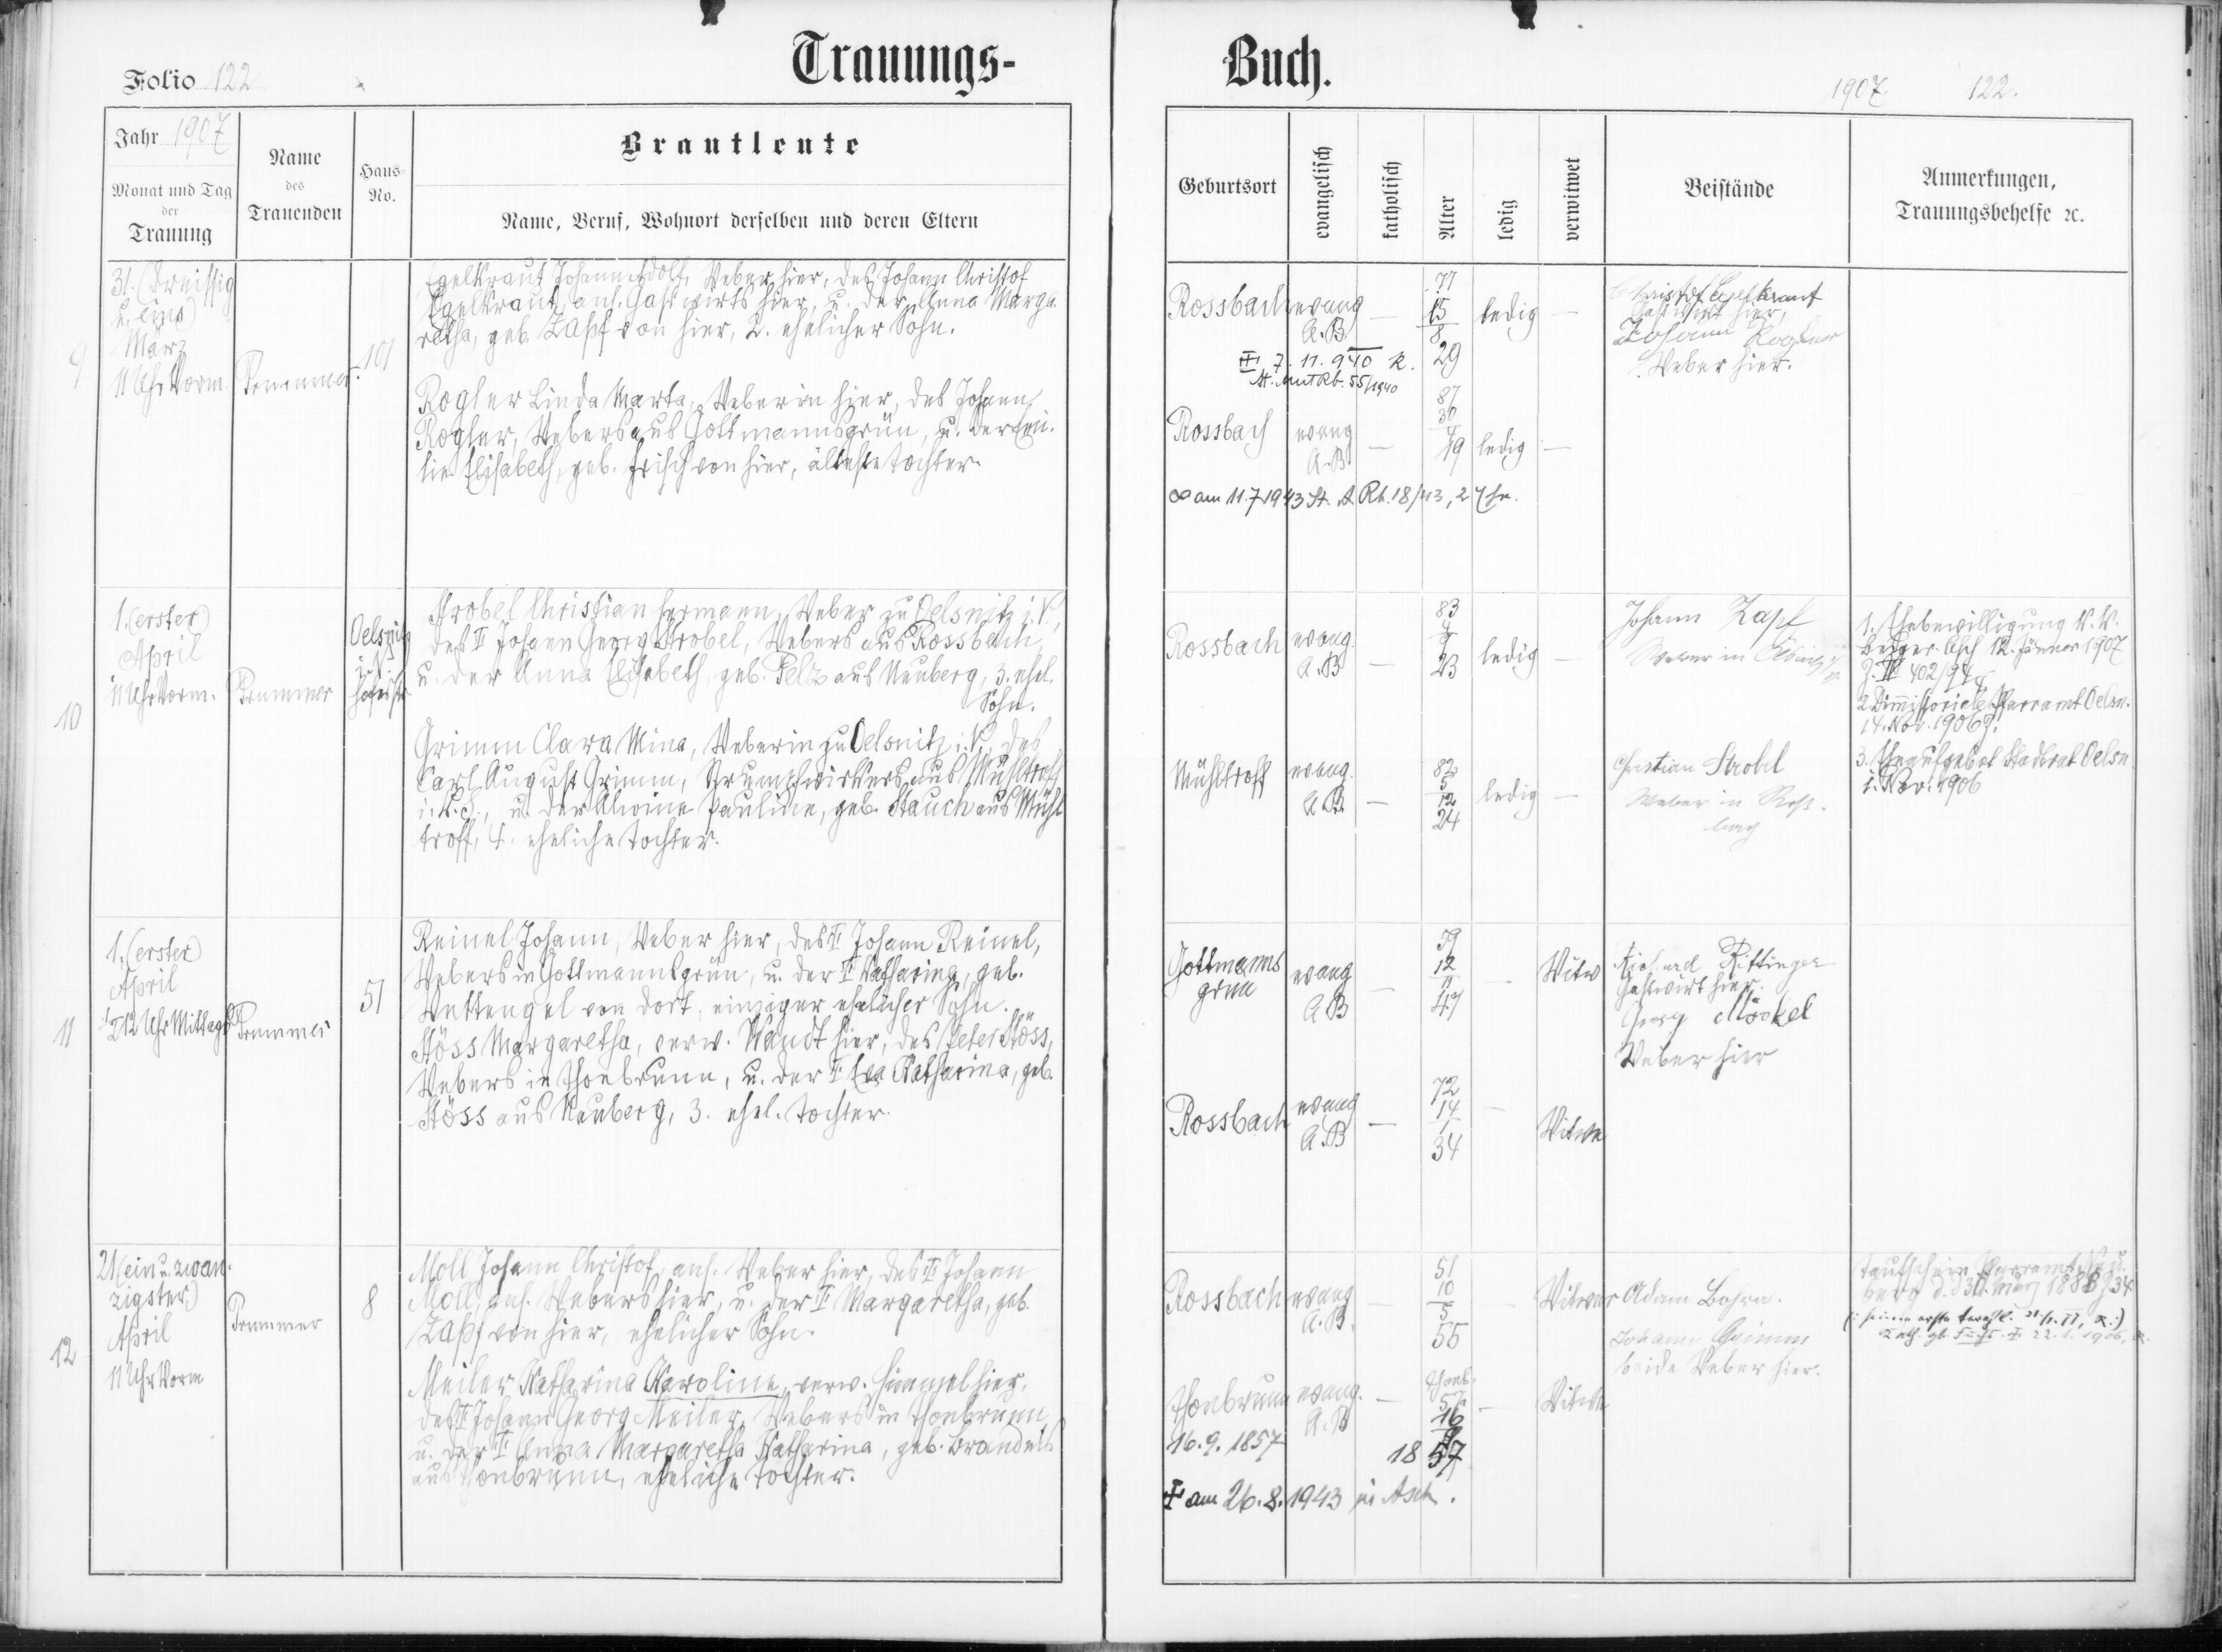 Trauungs-
Buch.
Folio 122
1907 122.
Jahr 1907
Monat und Tag
der
Trauung
Name
des
Trauenden
Haus-
No.
Brautleute
Name, Beruf, Wohnort derselben und deren Eltern
Geburtsort
evangelisch
katholisch
Alter
ledig
verwitwet
Beistände
Anmerkungen,
Trauungsbehelfe ꝛc.
9
31. (dreissig
u. eins)
März
11 Uhr Vorm.
101
Egelkraut Johann Adolf, Weber hier, des Johann Christof
Egelkraut, ans. Gastwirts hier, u. der Anna Marga-
retha, geb. Zapf von hier, 2. ehelicher Sohn.
Rogler Linda Marta, Weberin hier, des Johann
Rogler, Webers aus Gottmannsgrün, u. der Emi-
lie Elisabeth, geb. Frisch von hier, älteste Tochter.
Rossbach evang.
A.B.
—
77
15
8
29
ledig —
7. 11. 940 R.
St. Amt Rb. 55/1940
Rossbach evang
A.B.
—
87
30
4
19
ledig —
∞ am 11.7.1943 St. A. Rb. 18/43,
Christof Egelkraut
Gastwirt hier,
Johann Rogler
Weber hier.
10
1. (erster)
April
11 Uhr Vorm.
Oelsnitz
i. V.
Strobel Christian Hermann, Weber zu Oelsnitz i. V.,
des ‡ Johann Georg Strobel, Webers aus Rossbach,
u. der Anna Elisabeth, geb. Pelz aus Neuberg, 3. ehel.
Sohn.
Grimm Clara Mina, Weberin zu Oelsnitz i. V., des
Carl August Grimm, Strumpfwirkers aus Mühltroff
i. K. S., u. der Alwine Pauline, geb. Stauch aus Mühl
troff, 4. eheliche Tochter.
Rossbach evang.
A.B.
—
83
4
9
23
ledig —
Mühltroff evang.
A.B.
—
82
5
12
24
ledig —
Johann Zapf
Weber in
Christian Strobel
Weber in Ross-
bach
1. Ehebewilligung
12. Jänner 1907
402/94
2. Dimissoriale Pfarramt Oelsn.
14. Nov. 1906
3. Eheaufgebot Stadtrat Oelsn
1. Nov. 1906
11
1. (erster)
April
½12 Uhr Mittags
51
Reinel Johann, Weber hier, des ‡ Johann Reinel,
Webers in Gottmannsgrün, u. der ‡ Katharina, geb.
Wettengel von dort, einziger ehelicher Sohn.
Stöss Margaretha, verw. Wandt hier, des Peter Stöss,
Webers in Thonbrunn, u. der ‡ Eva Katharina, geb.
Stöss aus Neuberg, 3. ehel. Tochter.
Gottmanns
grün
evang
A.B
—
59
12
11
47
—
Witw
Rossbach evang
A.B
—
72
14
1
34
—
Witwe
Richard Rittinger
Gastwirt hier.
Georg Möckel
Weber hier
12
21 (ein u. zwan-
zigster)
April
11 Uhr Vorm.
8
Moll Johann Christof, ans. Weber hier, des ‡ Johann
Moll, ans. Webers hier, u. der ‡ Margaretha, geb.
Zapf von hier, ehelicher Sohn.
Meiler Katharina Karoline, verw. Himmel hier,
des ‡ Johann Georg Meiler, Webers in Thonbrunn,
u. der ‡ Anna Margaretha Katharina, geb. Brandner
aus Thonbrunn, eheliche Tochter.
Rossbach evang
A.B.
—
51
10
5
55
—
Witwer
Thonbrunn evang.
A.B
—
Thonb.
57
16
9
—
Witwe
16.9.1857
18 57
‡ am 26.8.1943 in Asch.
Adam
Johann Grimm
beide Weber hier.
Taufschein Pfarramt Neu-
berg d. d. 30. März 1888
22. 1. 1906